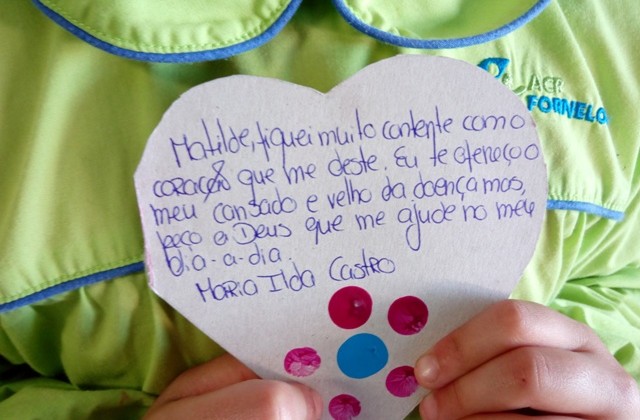 ACR
FORNELO
Matilde, fiquei muito contente com o
coração que me deste. Eu te ofereço o
meu cansado e velho da doença mas,
peço a Deus que me ajude no meu
Dia-a-dia.
Maria Ilda Castro